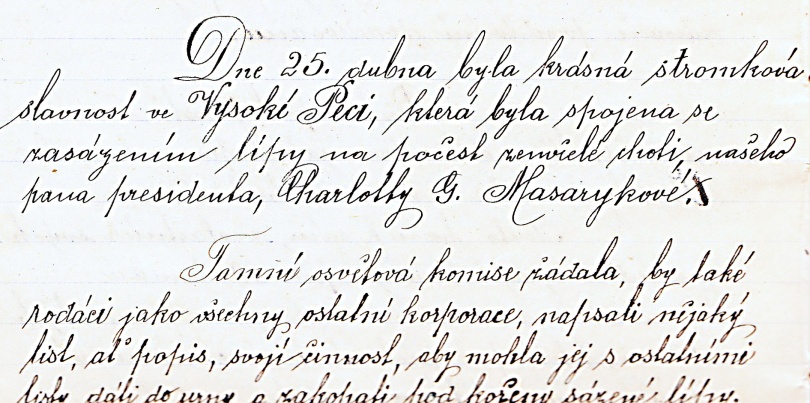 Dne 25. dubna byla krásná stromková
slavnost ve Vysoké Peci, která byla spojena se
zasázením lípy na počest zemřelé choti, našeho
pana presidenta, Charlotty G. Masarykové.
Tamní osvětová komise žádala, by také
rodáci jako všechny ostatní korporace, napsali nějaký
list, ať popis, svojí činnost, aby mohla jej s ostatními
listy dáti do urny a zakopati pod kořeny sázené lípy.